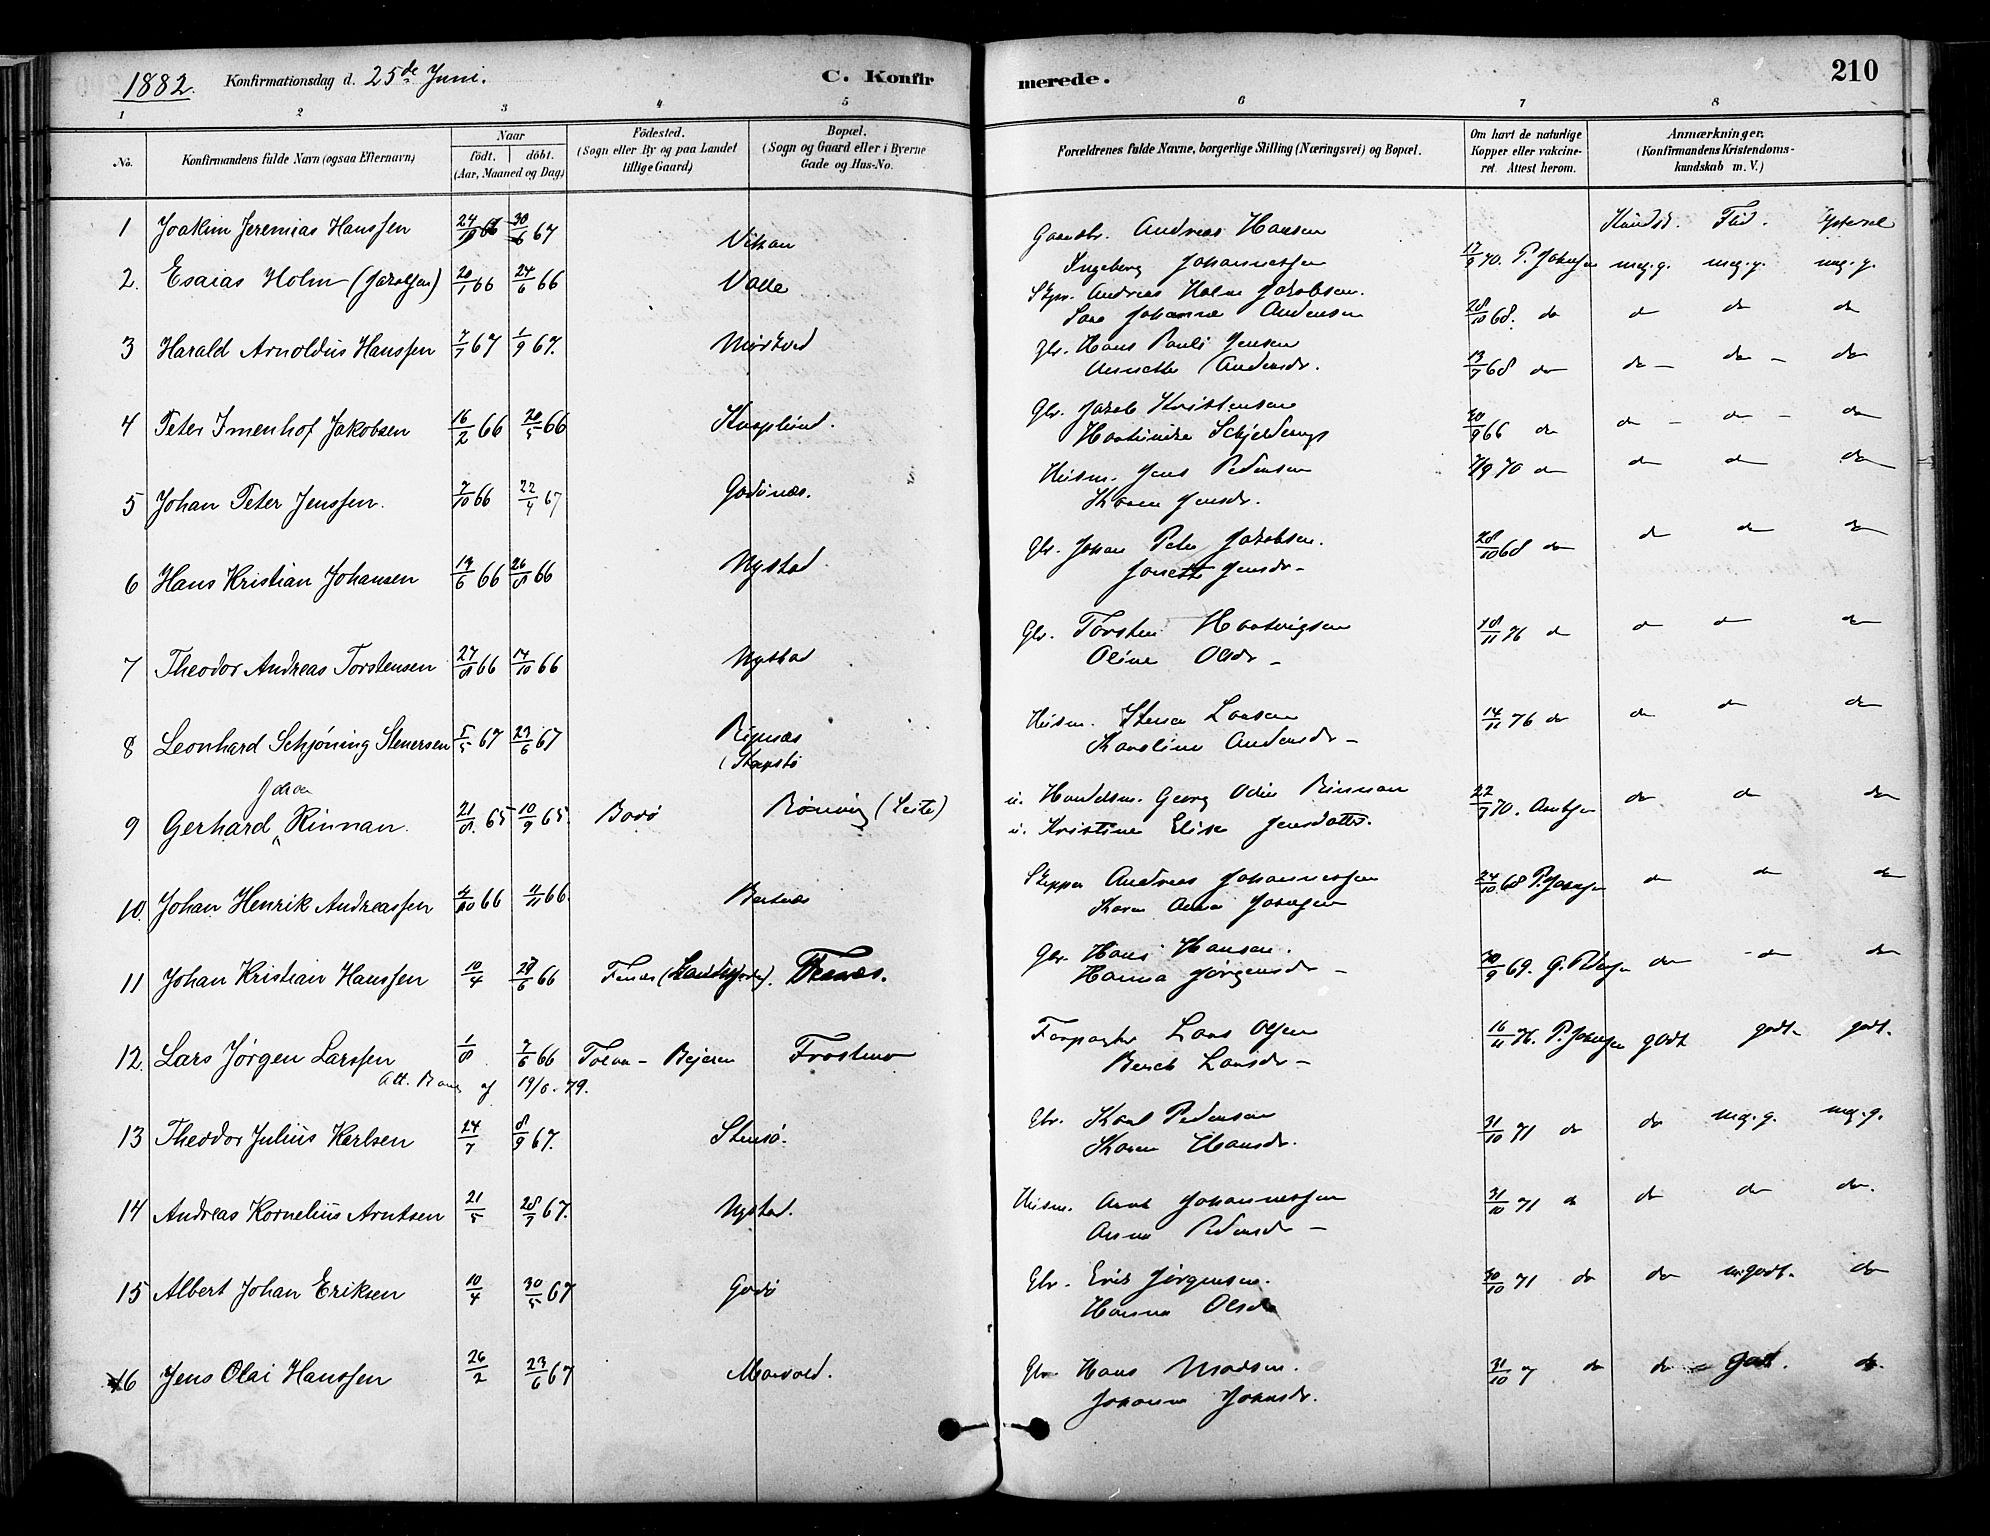 1882. Konfirmationsdag d. 25de Juni. C. Konfir merede. 210
1 2 3 4 5 6 7 8
No. Konfirmandens fulde Navn (ogsaa Efternavn) Naar født. døbt. (Aar, Maaned og Dag) Födested. (Sogn eller By og paa Landet tillige Gaard) Bopæl. (Sogn og Gaard eller i Byerne Gade og Hus-No. Forældrenes fulde Navne, borgerlige Stilling (Næringsvei) og Bopæl. Om havt de naturlige Kopper eller vakcineret. Attest herom. Anmærkninger. (Konfirmandens Kristendomskundskab m. V.)
Kundsk. Flid.
1 Joakim Jeremias Hanssen 30/6 67 Vikan Gaardbr. Andreas Hansen
Ingeberg Johannessen 17/9 70. P. meg. g. meg. g. meg. g.
2. Esaias Holm (Jakobsen) 20/1 66 24/6 66 Valle Skpr. Andreas Holm Jakobsen.
Johanna Andersen 28/10 68. do do do do
3 Harald Arnoldus Hanssen 7/7 67 1/9 67. Mørkved Gbr. Hans Pauli Jensen
Andersdr. 13/7 68 do do - do - do
4 Peter Imenhof Jakobsen 16/2 66 20/5 66 Knaplund. Gbr. Jakob Kristensen
Schjelderup 30/9 66 do do - do - do
5 Johan Peter Jenssen. 7/10 66 22/4 67 Godønæs. Husm. Jens Pedersen
Karen Jensdr. 70 do do do do
6 Hans Kristian Johansen 19/6 66 26/8 66 Nystad Gbr. Johan Peter Jakobsen.
Jensdr - 28/10 68 do do do do
7 Theodor Andreas Torstensen 27/8 66 14/10 66 Nystad Gbr. Torsten Hartvigsen
Oline Olsdr - 18/11 76 do do do do
8 Leonhard Schjøning Stenersen 5/5 67 23/6 67 Ripnæs
Husm. Stener Larsen
Karoline Andersdr - 14/11 76 do do do do
Johan
9 Gerhard Rinnan. 21/8. 65 10/9 65. Bodø Rønvig (Seite) u. Handelsm. Georg Odin Rinnan
u. Kristine Elise Jensdatter. 22/7 70. do do do
10. Johan Henrik Andreassen 4/10 66 11/11 66. Bertnæs Skipper Andreas Johannessen
Karen Anna 24/10 68 P. do do do
11 Johan Kristian Hanssen 10/4 66 Gbr. Hans Hansen.
Hanna Jørgensdr - 30/9 69. G. do - do do
12. Lars Jørgen Larssen 1/8 7/6 66 - Bejeren Forpagter Lars Olsen
Larsdr - 16/11 76. P. godt godt. godt.
Att. af 19/6. 79.
13 Theodor Julius Karlsen 24/7 8/9 67. Stensø. Gbr. Karl Pedersen
Karen Hansdr. 31/10 71 do do meg. g. meg. g.
14 Andreas Kornelius Arntsen 21/5 28/7 67. Nystad. Husm. Arnt Johannessen
Anna Pedersdr - 31/10 71 do do do do.
15 Albert Johan Eriksen 10/4 30/5 67 Godø Gbr. Erik Jørgensen.
Hanna Olsdr 30/10 71 do do m. godt. do
16 Jens Olai Hanssen 26/2 23/6 67 Gbr Hans Madsen.
Johanna 31/10 7 do do godt. do